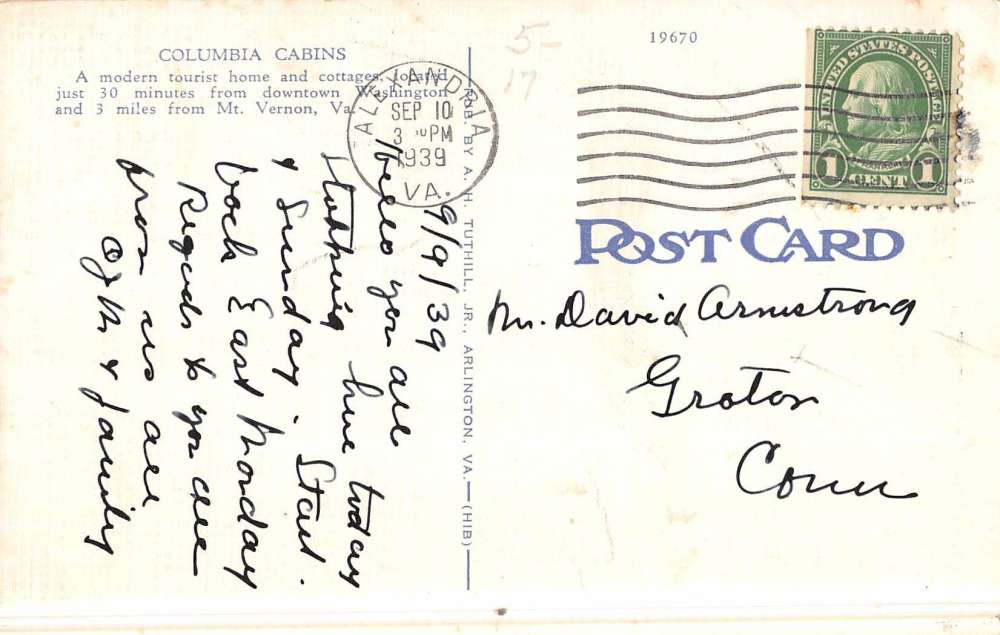 COLUMBIA CABINS
A modern tourist home and cottages, located
just 30 minutes from downtown Washington
and 3 miles from Mt. Vernon, Va.
5-
17
19670
ALEXANDRIA
SEP 10
3 PM
1939
VA.
UNITED STATES POSTAGE
1 CENT 1
POST CARD
PUB. BY A. H. TUTHILL, JR., ARLINGTON, VA.—(HIB)
9/9/39
Hello you all
Stopping here today
& Sunday. Start
back East Monday
Regards to you all
from us all
& family
Mr. David Armstrong
Groton
Conn